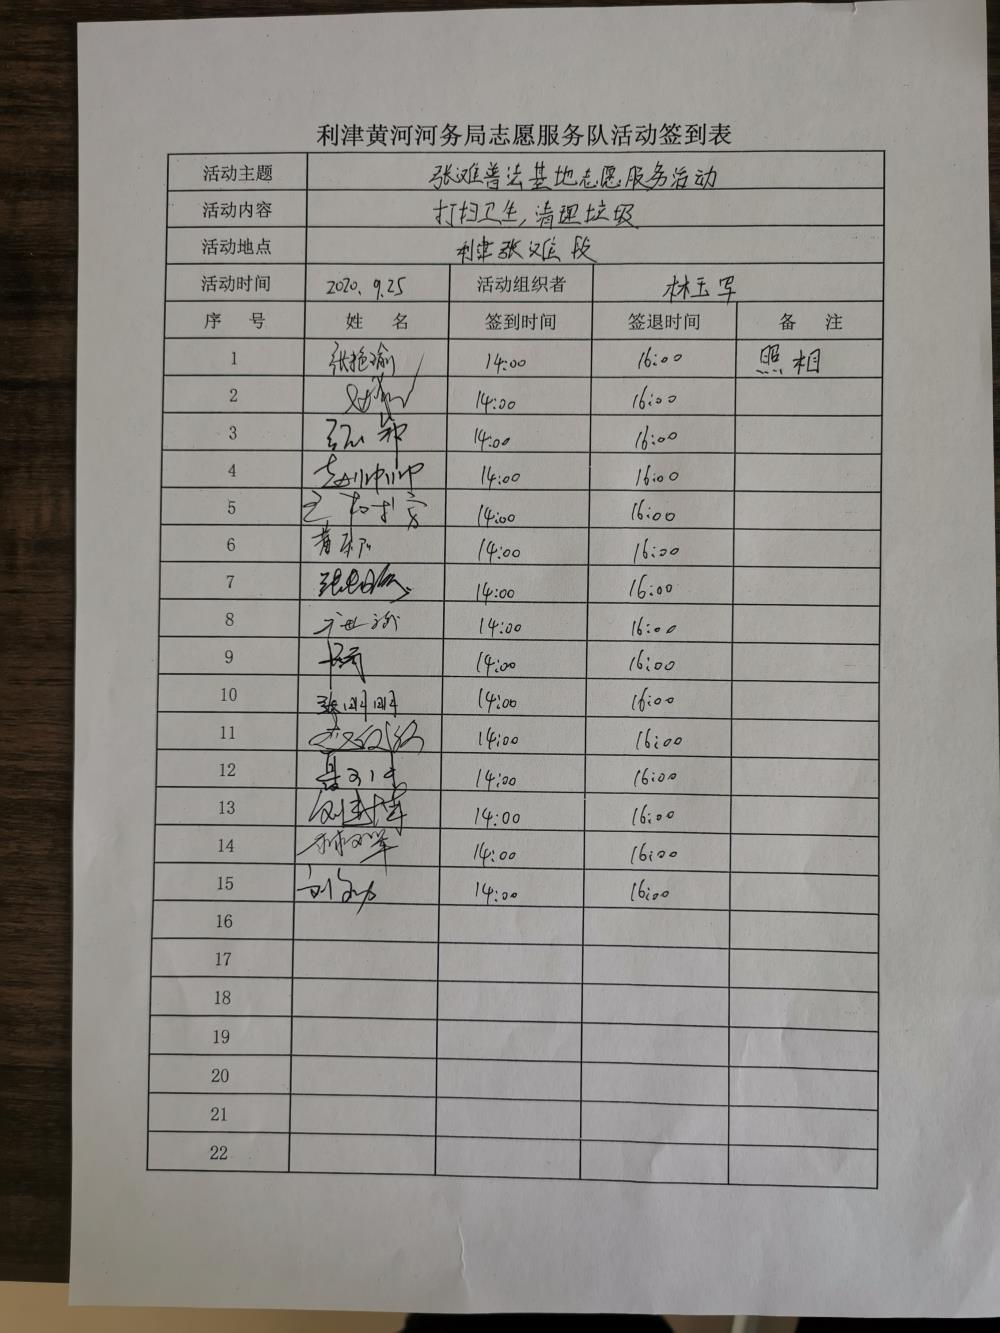 利津黄河河务局志愿服务队活动签到表
活动主题 张滩普法基地志愿服务活动
活动内容 打扫卫生,清理垃圾
活动地点 利津张滩段
活动时间 2020.9.25 活动组织者 林玉军
序 号 姓 名 签到时间 签退时间 备 注
1 张艳瑜 14:00 16:00 照相
2 14:00 16:00
3 14:00 16:00
4 赵帅帅 14:00 16:00
5 14:00 16:00
6 14:00 16:00
7 14:00 16:00
8 14:00 16:00
9 14:00 16:00
10 张明明 14:00 16:00
11 14:00 16:00
12 14:00 16:00
13 14:00 16:00
14 14:00 16:00
15 14:00 16:00
16
17
18
19
20
21
22